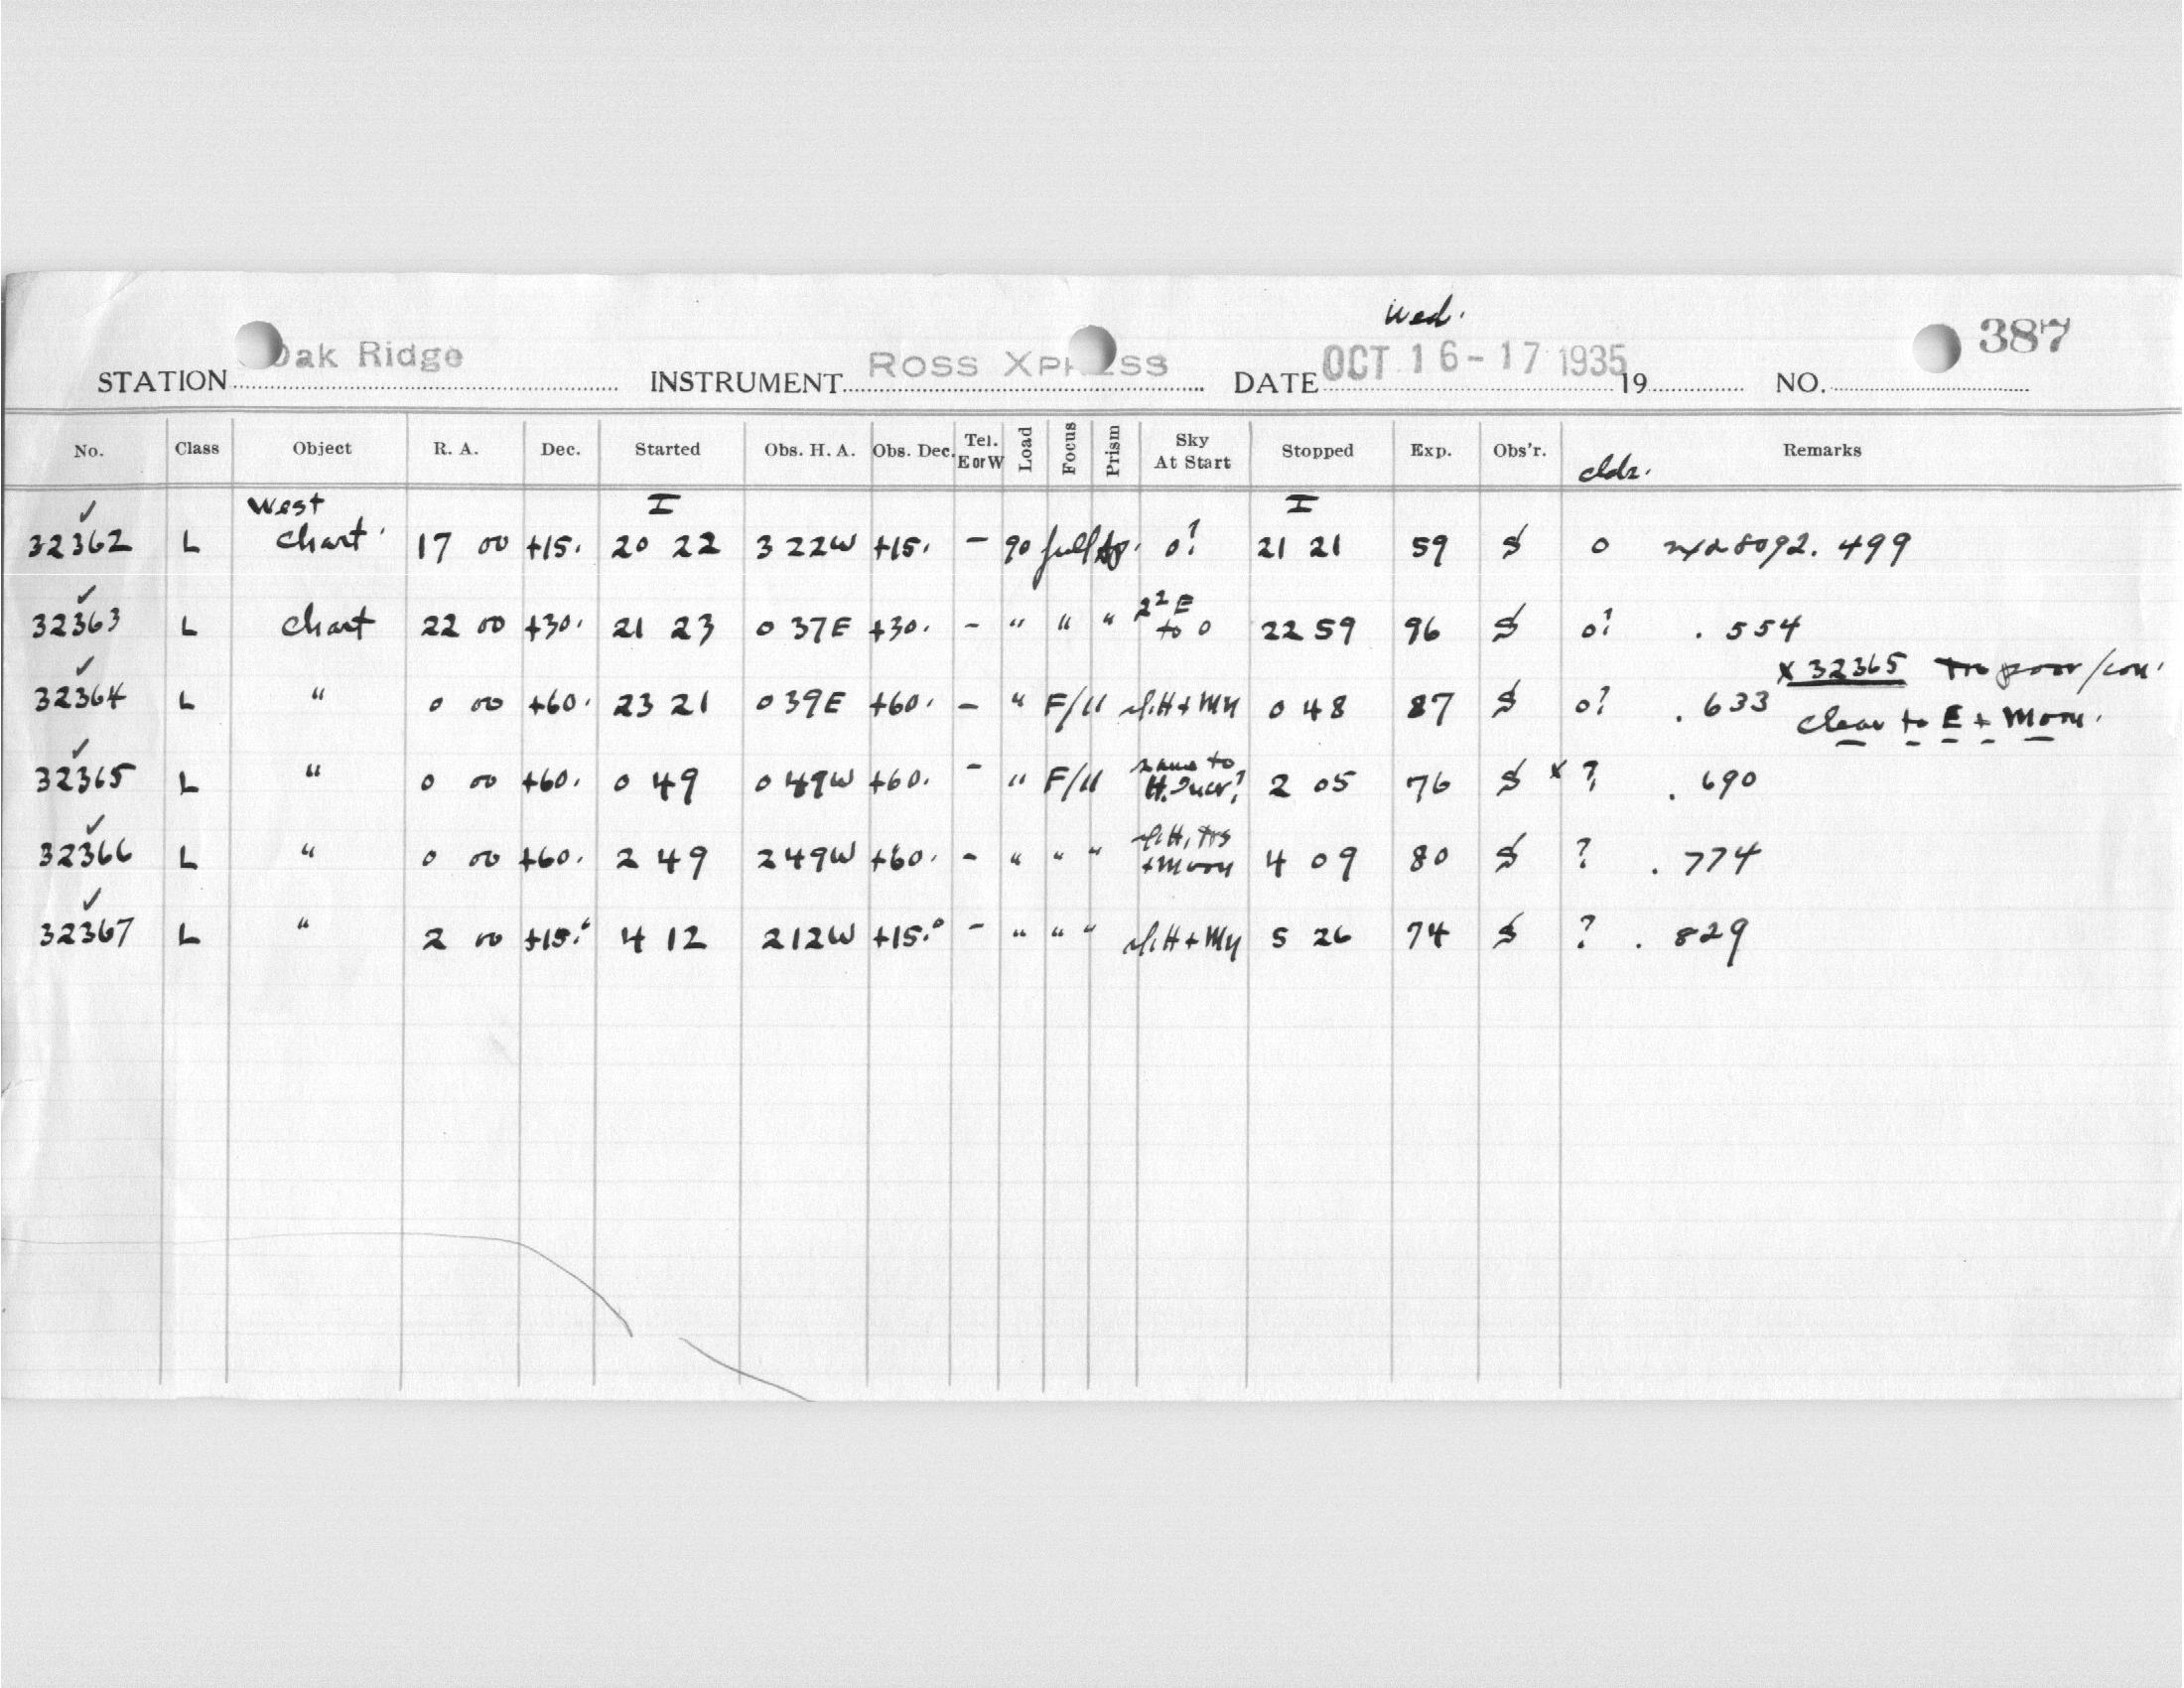 Wed.
Oak Ridge ROSS XPRESS OCT 16-17 1935 387
STATION INSTRUMENT DATE 19 NO.
No. Class Object R. A. Dec. Started Obs. H. A. Obs. Dec. Tel. E or W Load Focus Prism Sky At Start Stopped Exp. Obs'r. cldr. Remarks
West I I
32362 L chart 17 00 +15. 20 22 3 22W +15. - 90 full ap. 0? 21 21 59 $ 0 28092.499
32363 L chart 22 00 +30. 21 23 0 37E +30. - " " " 2² E to 0 22 59 96 $ 0? .554
32364 L " 0 00 +60. 23 21 0 39E +60. - " F/11 sl.H + Mn 0 48 87 $ 0? .633
x 32365 Too poor/con.
clear to E + Moon.
32365 L " 0 00 +60. 0 49 0 49W +60. - " F/11 same to H. Incr? 2 05 76 $ x ? .690
32366 L " 0 00 +60. 2 49 2 49W +60. - " " " sl.H, + Moon 4 09 80 $ ? .774
32367 L " 2 00 +15.° 4 12 2 12W +15.° - " " " sl.H + Mn 5 26 74 $ ? .829